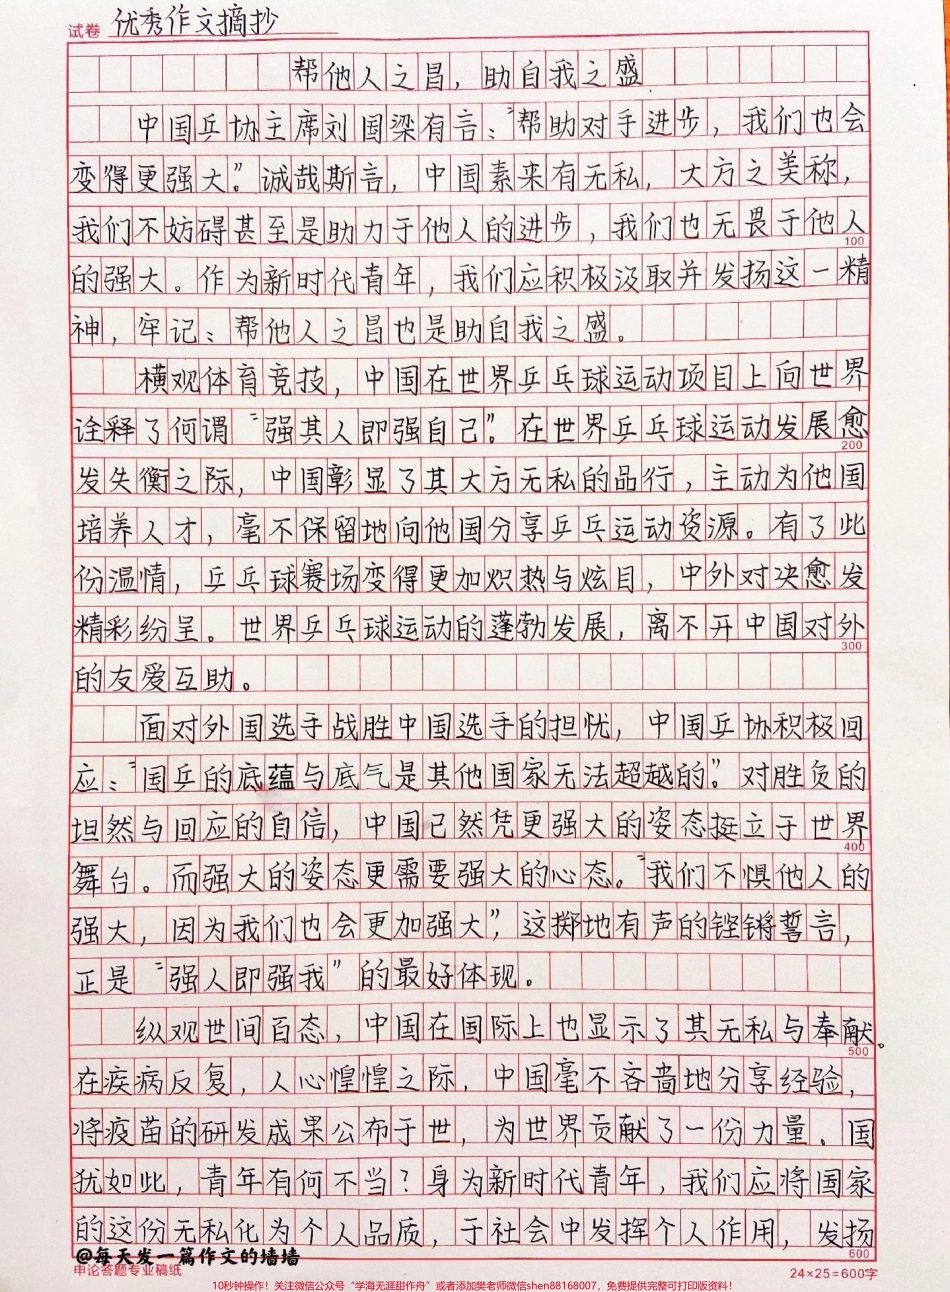 试卷 优秀作文摘抄
帮他人之昌，助自我之盛
中国乒协主席刘国梁有言：“帮助对手进步，我们也会
变得更强大”。诚哉斯言，中国素来有无私，大方之美称，
我们不妨碍甚至是助力于他人的进步，我们也无畏于他人
100
的强大。作为新时代青年，我们应积极汲取并发扬这一精
神，牢记：帮他人之昌也是助自我之盛。
横观体育竞技，中国在世界乒乓球运动项目上向世界
诠释了何谓“强其人即强自己”。在世界乒乓球运动发展愈
200
发失衡之际，中国彰显了其大方无私的品行，主动为他国
培养人才，毫不保留地向他国分享乒乓运动资源。有了此
份温情，乒乓球赛场变得更加炽热与炫目，中外对决愈发
精彩纷呈。世界乒乓球运动的蓬勃发展，离不开中国对外
300
的友爱互助。
面对外国选手战胜中国选手的担忧，中国乒协积极回
应：“国乒的底蕴与底气是其他国家无法超越的”。对胜负的
坦然与回应的自信，中国已然凭更强大的姿态挺立于世界
400
舞台。而强大的姿态更需要强大的心态。“我们不惧他人的
强大，因为我们也会更加强大”，这掷地有声的铿锵誓言，
正是“强人即强我”的最好体现。
纵观世间百态，中国在国际上也显示了其无私与奉献。
500
在疾病反复，人心惶惶之际，中国毫不吝啬地分享经验，
将疫苗的研发成果公布于世，为世界贡献了一份力量、国
犹如此，青年有何不当？身为新时代青年，我们应将国家
的这份无私化为个人品质，于社会中发挥个人作用，发扬
@每天发一篇作文的墙墙
600
申论答题专业稿纸
24×25=600字
10秒钟操作！关注微信公众号“学海无涯甜作舟”或者添加樊老师微信shen88168007，免费提供完整可打印版资料！